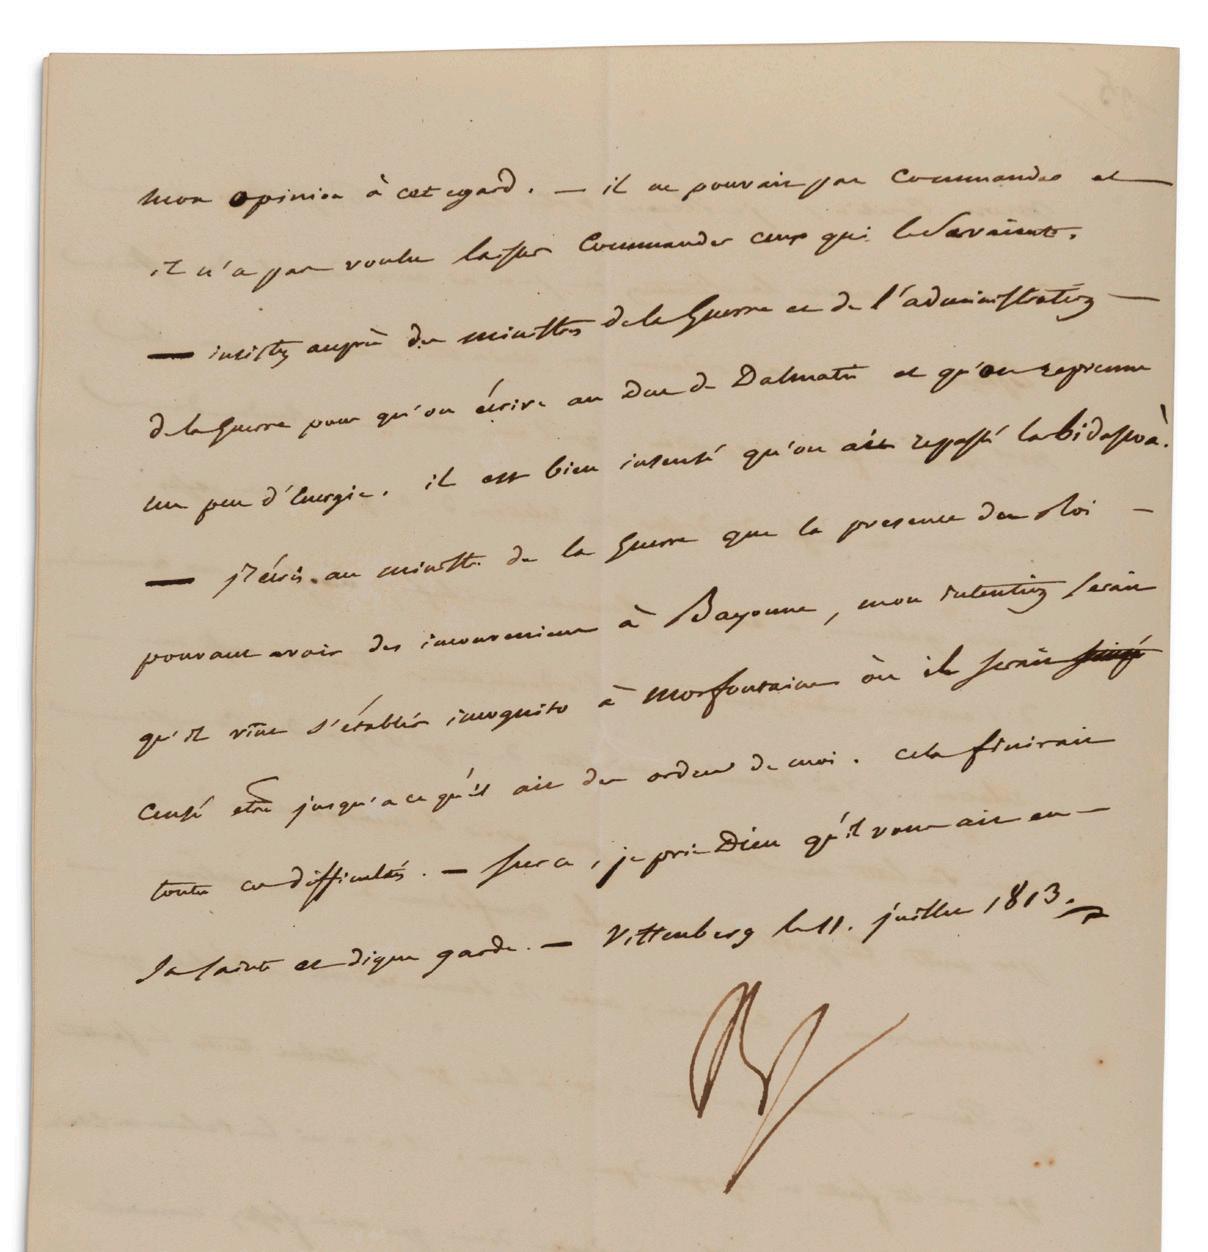 mon opinion à cet egard. — il ne pouvait pas commander et —
il n'a pas voulu laisser commander ceux qui le savaient.
— insistez auprès des ministres de la Guerre et de l'administration —
de la Guerre pour qu'on écrive au Duc de Dalmatie et qu'on reprenne
un peu d'énergie. il est bien insensé qu'on ait repassé la bidassoa.
— j'écris au ministre de la Guerre que la presence du Roi —
pouvant avoir des inconveniens à Bayonne, mon intention serait
qu'il vint s'établir incognito à Morfontaine où il serait
censé être jusqu'a ce qu'il ait des ordres de moi. cela finirait
toutes ces difficultés. — sur ce, je prie Dieu qu'il vous ait en —
sa sainte et digne garde. — Vittenberg le 11. juillet 1813.